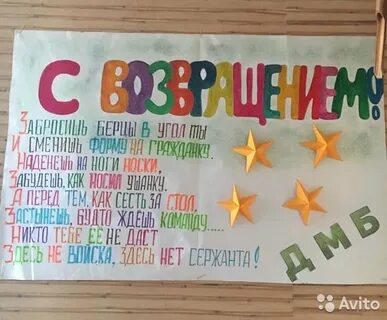 С ВОЗВРАЩЕНИЕМ!
ЗАБРОСИШЬ БЕРЦЫ В УГОЛ ТЫ
И СМЕНИШЬ ФОРМУ НА ГРАЖДАНКУ.
НАДЕНЕШЬ НА НОГИ НОСКИ,
ЗАБУДЕШЬ, КАК НОСИЛ УШАНКУ.
А ПЕРЕД ТЕМ, КАК СЕСТЬ ЗА СТОЛ,
ЗАСТЫНЕШЬ, БУДТО ЖДЕШЬ КОМАНДУ.....
НИКТО ТЕБЕ ЕЕ НЕ ДАСТ
ЗДЕСЬ НЕ ВОЙСКА, ЗДЕСЬ НЕТ СЕРЖАНТА!
ДМБ
Avito